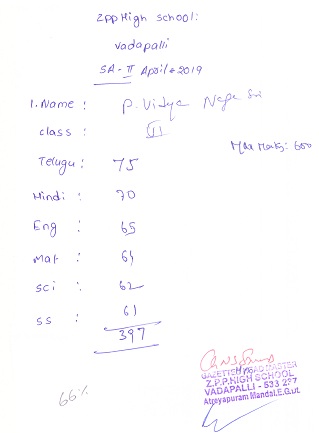 ZPP High school:
Vadapalli
SA-II April-2019
1. Name : P. Vidya Naga Sri
class : VI
Max Marks: 600
Telugu : 75
Hindi : 70
Eng : 65
Mat : 64
sci : 62
ss : 61
397
66%
GAZETTED HEAD MASTER
Z.P.P.HIGH SCHOOL
VADAPALLI - 533 237
Atreyapuram Mandal.E.G.Dt.